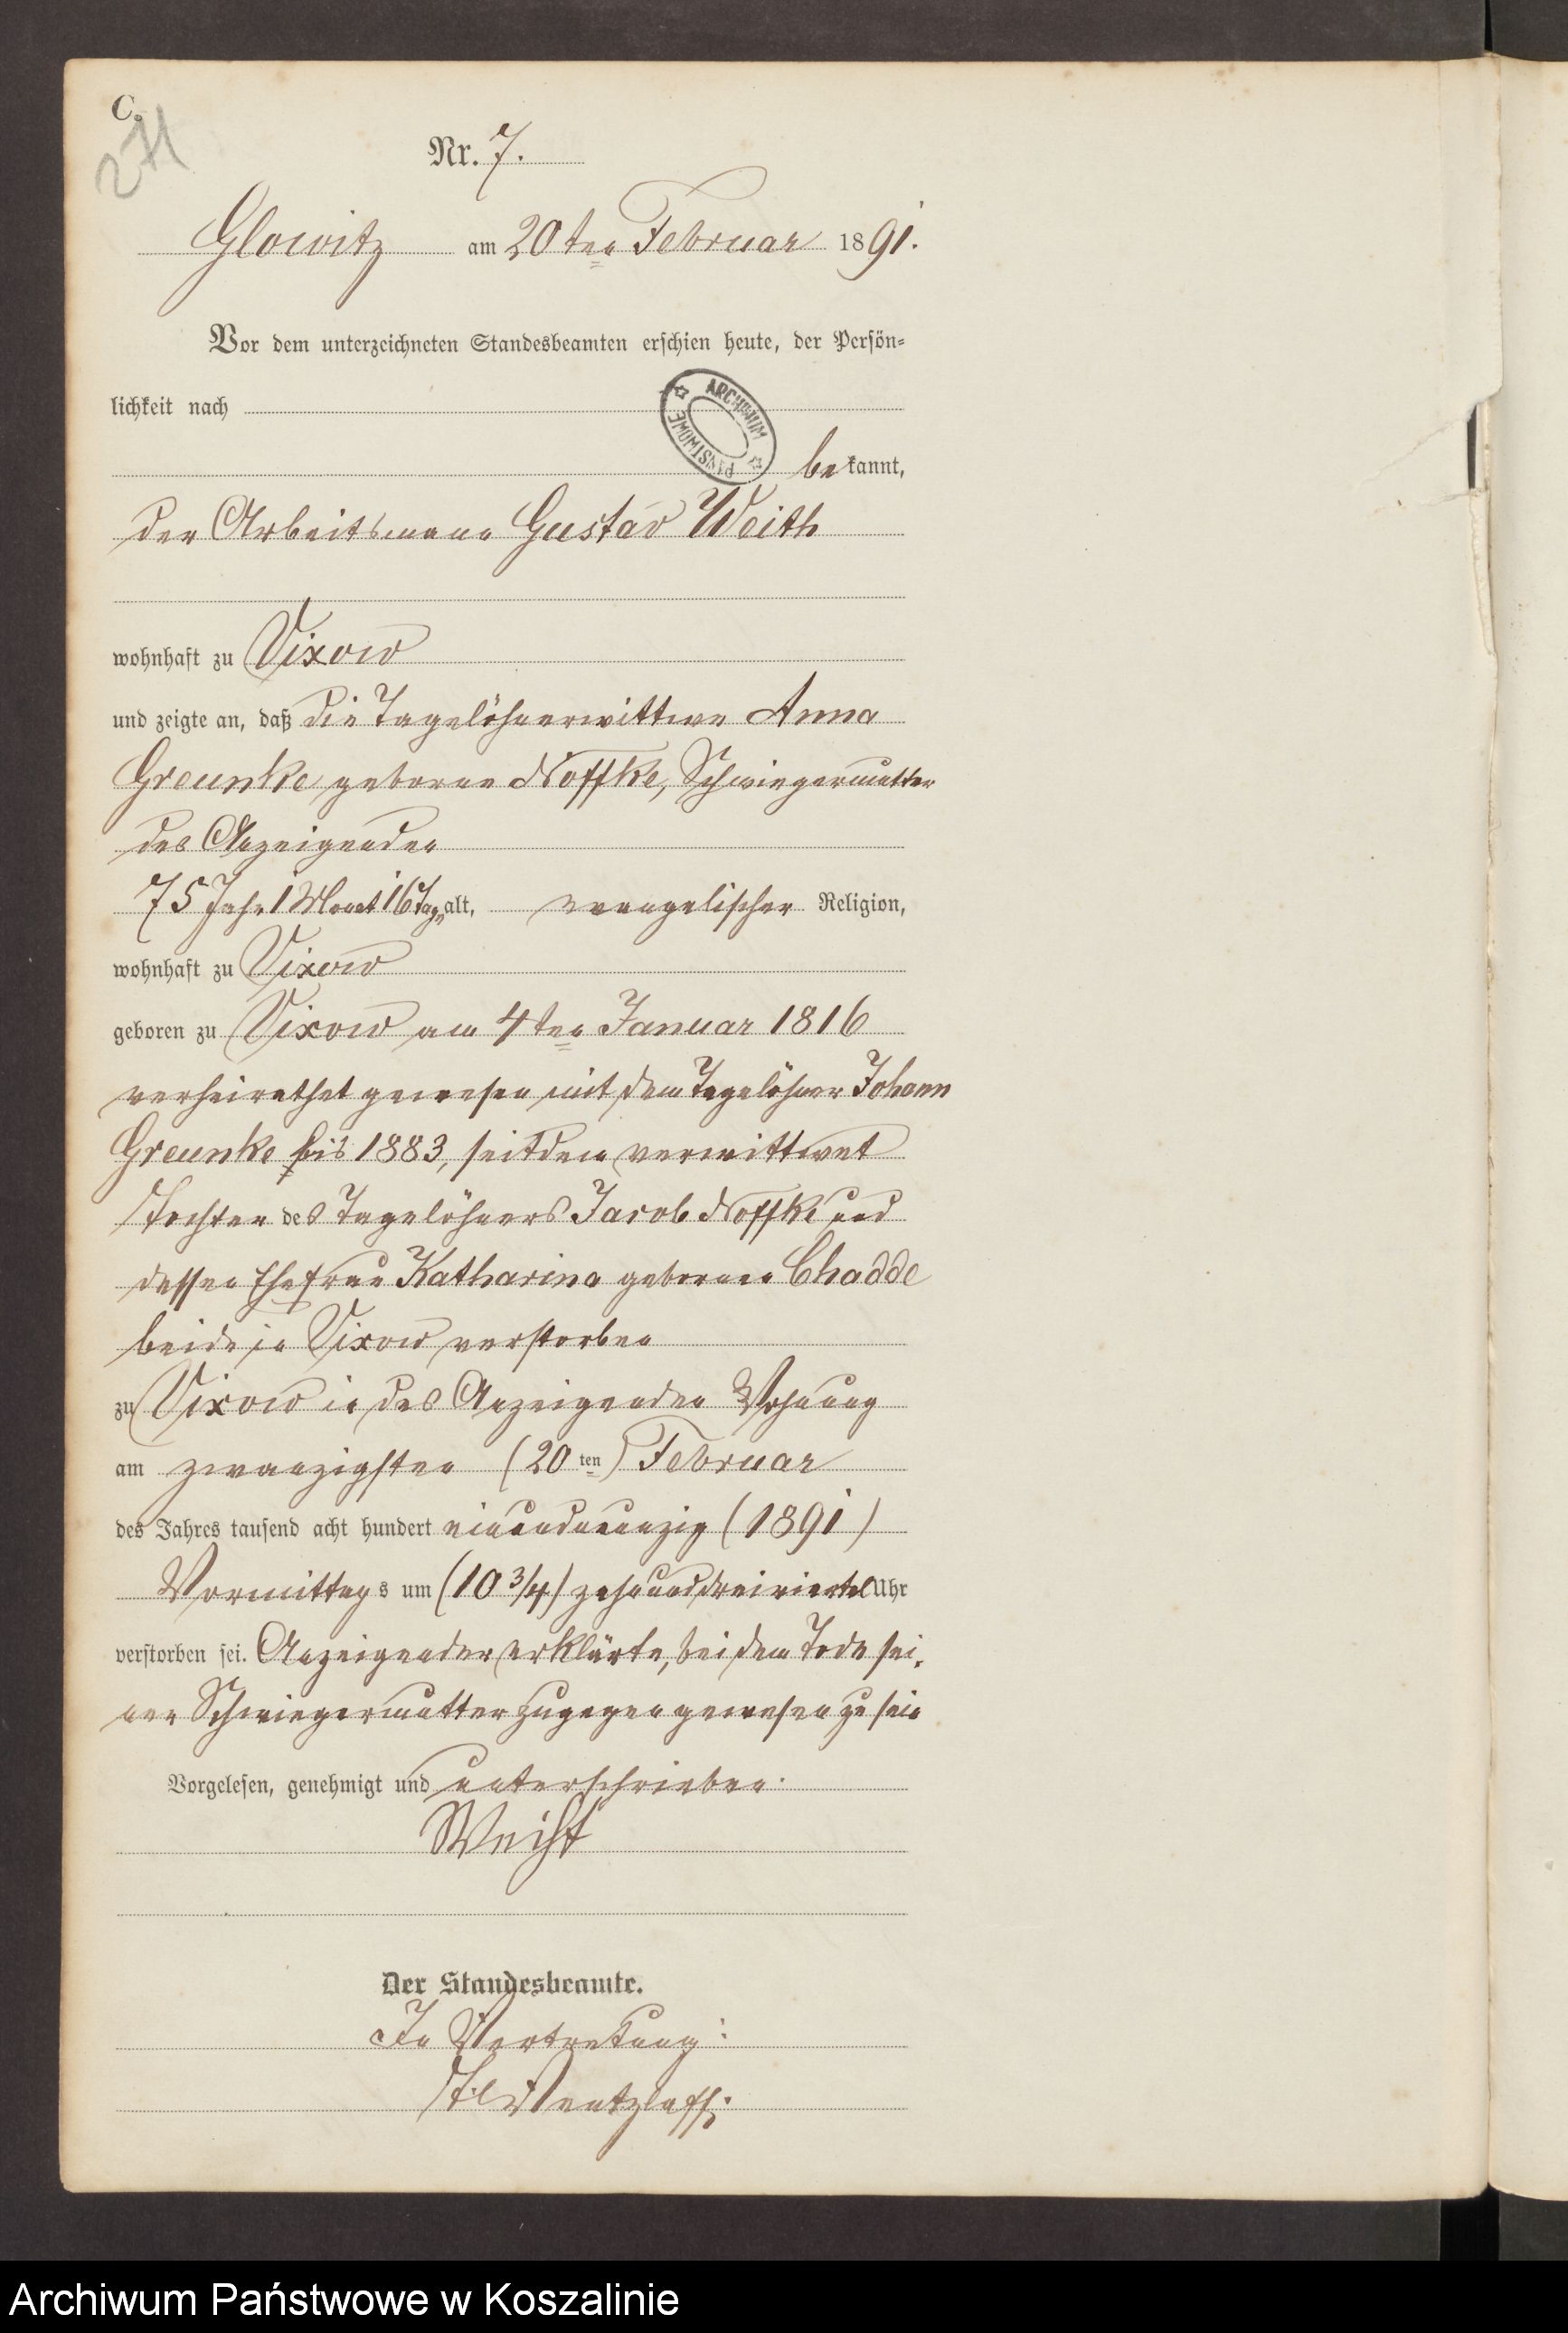 C.
271
Nr. 7.
Glowitz am 20ten Februar 1891.
Vor dem unterzeichneten Standesbeamten erschien heute, der Persön-
lichkeit nach
ARCHIWUM PAŃSTWOWE
bekannt,
der Arbeitsmann Gustav Weith
wohnhaft zu Vixow
und zeigte an, daß die Tagelöhnerwittwe Anna
Greunke geborne Noffke, Schwiegermutter
des Anzeigenden
75 Jahr 1 Monat 16 Tage alt, evangelischer Religion,
wohnhaft zu Vixow
geboren zu Vixow am 4ten Januar 1816
verheirathet gewesen mit dem Tagelöhner Johann
Greunke bis 1883, seitdem verwittwet
Tochter des Tagelöhners Jacob Noffke und
dessen Ehefrau Katharina gebornen Chadde
beide in Vixow verstorben
zu Vixow in des Anzeigenden Wohnung
am zwanzigsten (20ten) Februar
des Jahres tausend acht hundert einundneunzig (1891)
Vormittags um (10 3/4) zehn und dreiviertel Uhr
verstorben sei. Anzeigender erklärte, bei dem Tode sei-
ner Schwiegermutter zugegen gewesen zu sein
Vorgelesen, genehmigt und unterschrieben.
Weiht
Der Standesbeamte.
In Vertretung:
Wentzlaff.
Archiwum Państwowe w Koszalinie